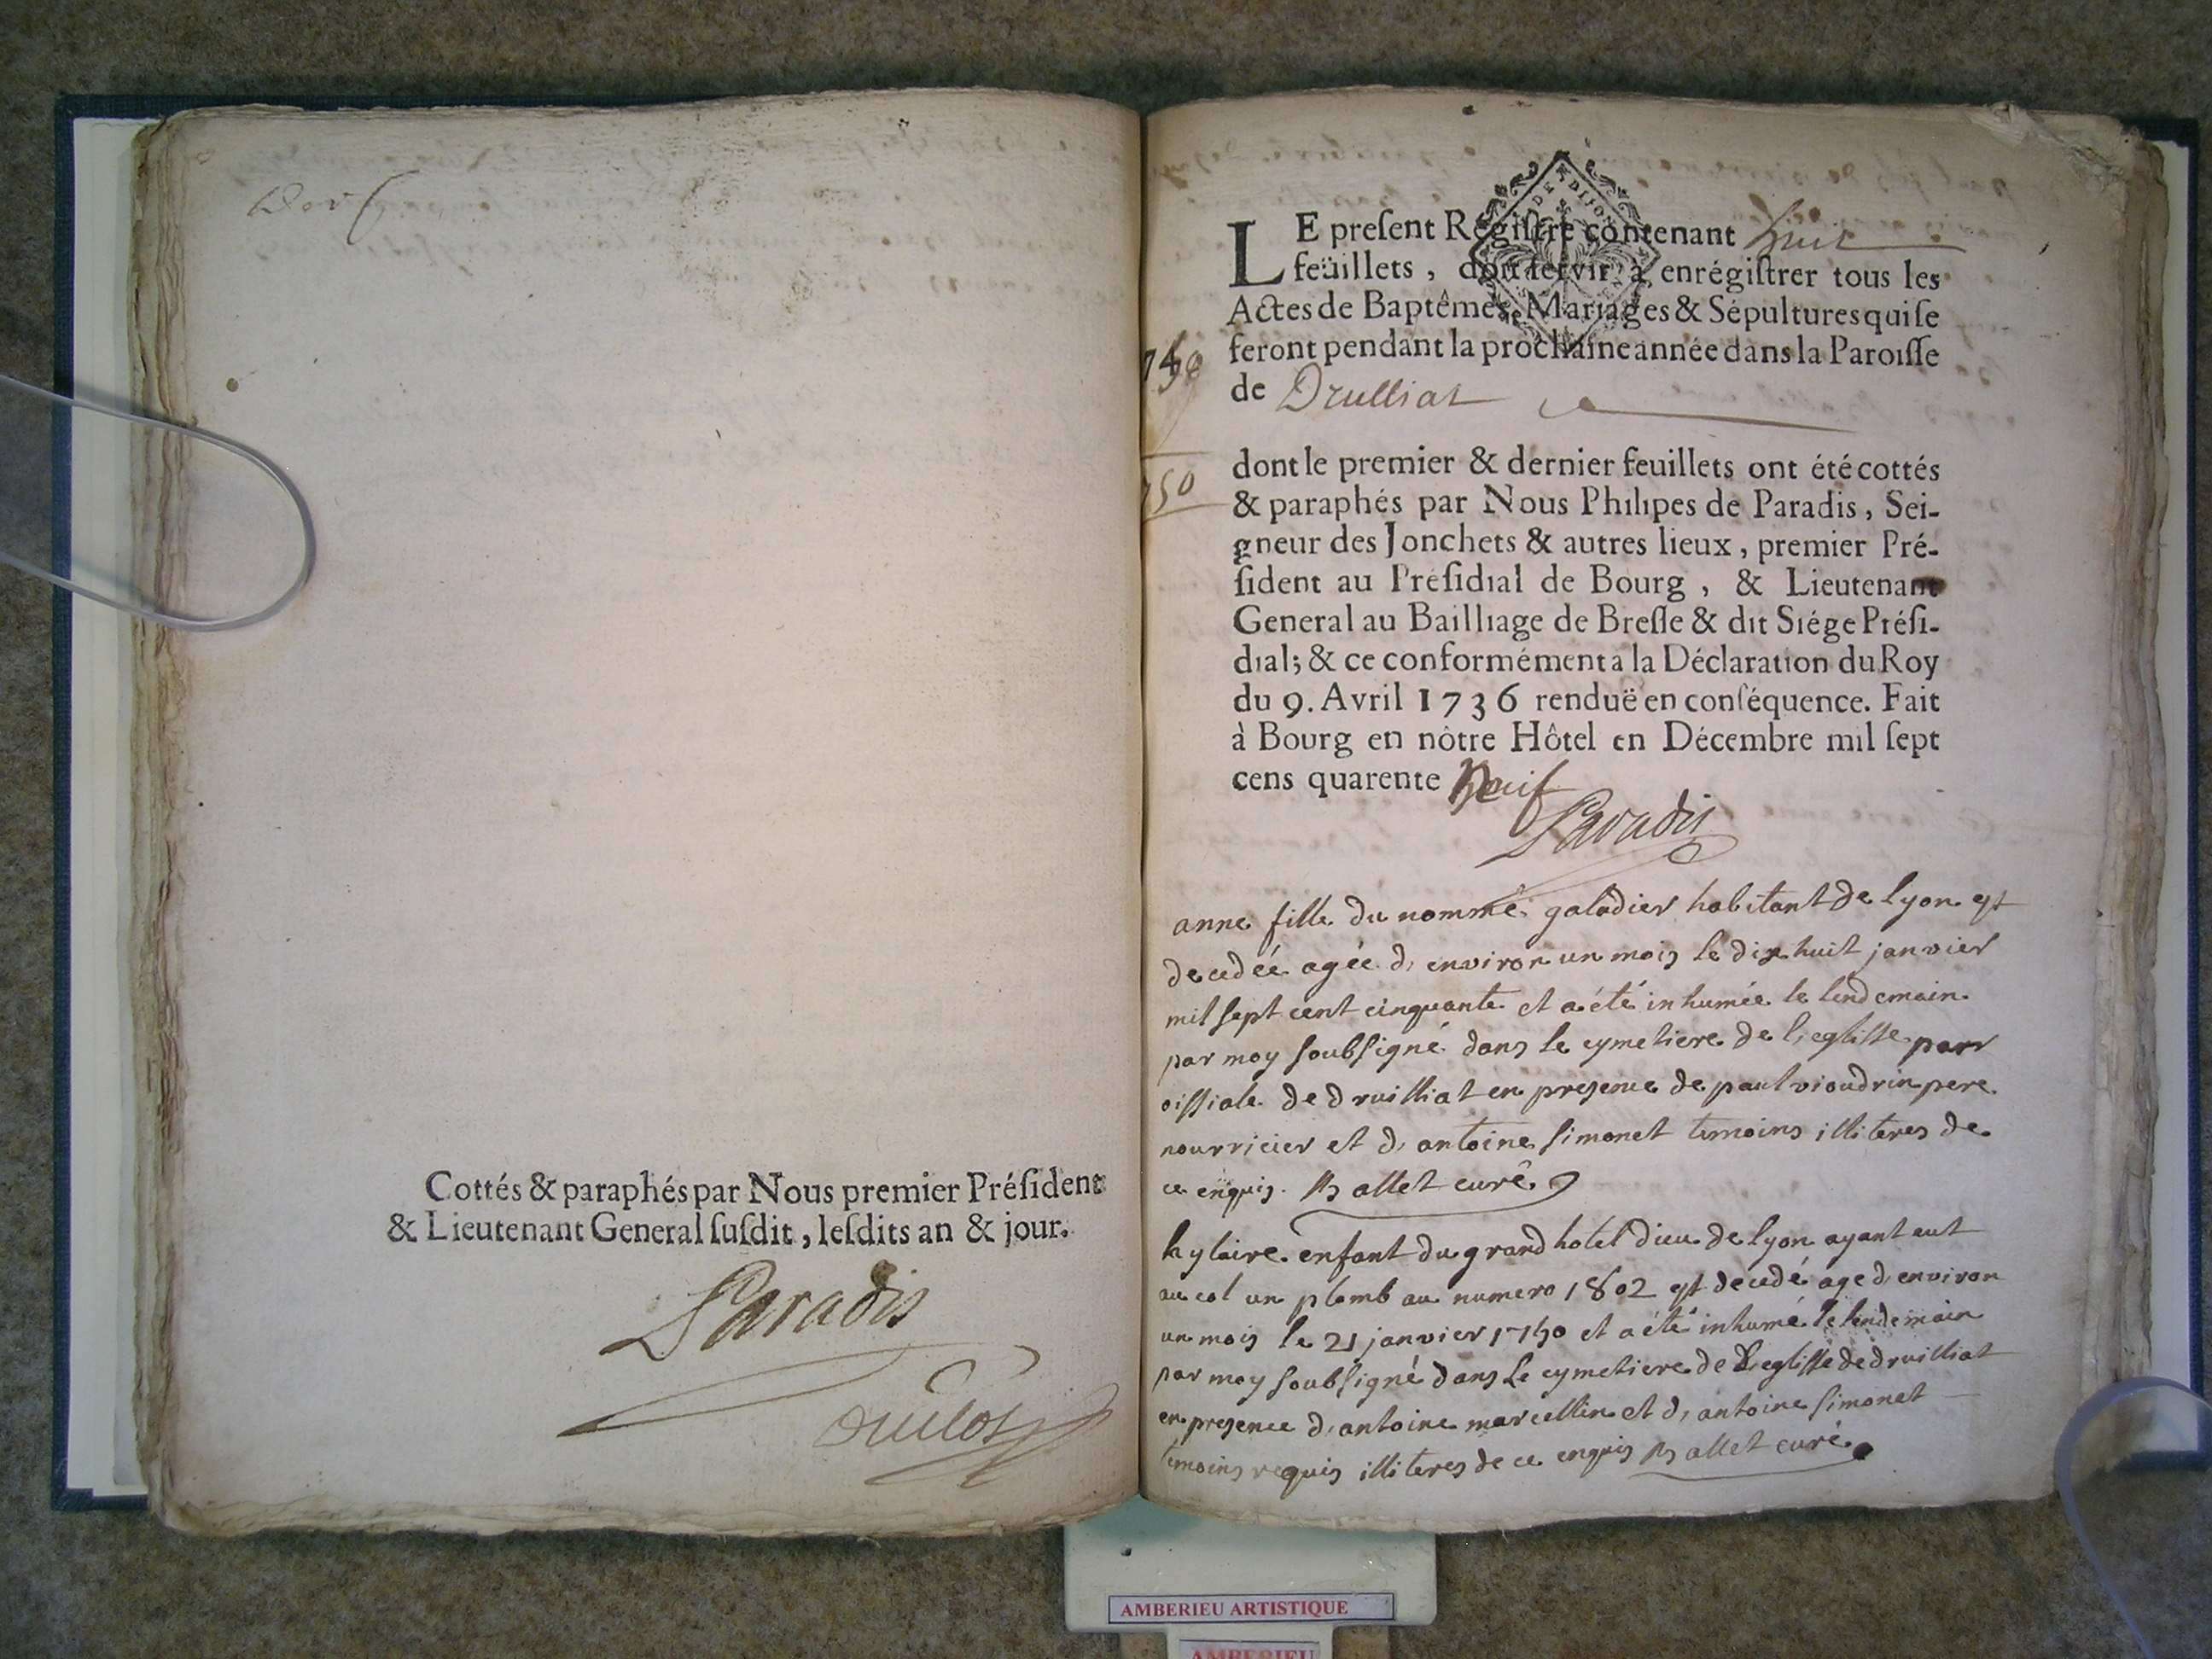 Cottés & paraphés par Nous premier Préſident
& Lieutenant General ſuſdit, leſdits an & jour.
Paradis
DE DIJON
LE preſent Régiſtre contenant huit
feüillets, doit ſervir à enrégiſtrer tous les
Actes de Baptêmes, Mariages & Sépultures qui ſe
feront pendant la prochaine année dans la Paroiſſe
de Drulliat
1750
dont le premier & dernier feuillets ont été cottés
& paraphés par Nous Philipes de Paradis, Sei-
gneur des Jonchets & autres lieux, premier Pré-
ſident au Préſidial de Bourg, & Lieutenant
General au Bailliage de Breſſe & dit Siége Préſi-
dial; & ce conformément a la Déclaration du Roy
du 9. Avril 1736 renduë en conſéquence. Fait
à Bourg en nôtre Hôtel en Décembre mil ſept
cens quarente Neuf
Paradis
anne fille du nommé galadier habitant de lyon est
decedée agée d, environ un mois le dix huit janvier
mil sept cent cinquante et a été inhumée le lendemain
par moy soubsigné dans le cymetiere de l, eglisse parr
oissiale de druilliat en presence de paul vioudrin pere
nourricier et d, antoine simonet temoins illiteres de
ce enquis. allet curé
hylaire enfant du grand hotel dieu de lyon ayant eut
au col un plomb au numero 1802 est decedé age d, environ
un mois le 21 janvier 1750 et a été inhumé le lendemain
par moy soubsigné dans le cymetiere de l, eglisse de druilliat
en presence d, antoine marcellin et d, antoine simonet
temoins requis illiteres de ce enquis allet curé
AMBERIEU ARTISTIQUE
AMBERIEU